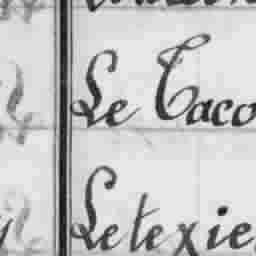 Le Taco
Letexie